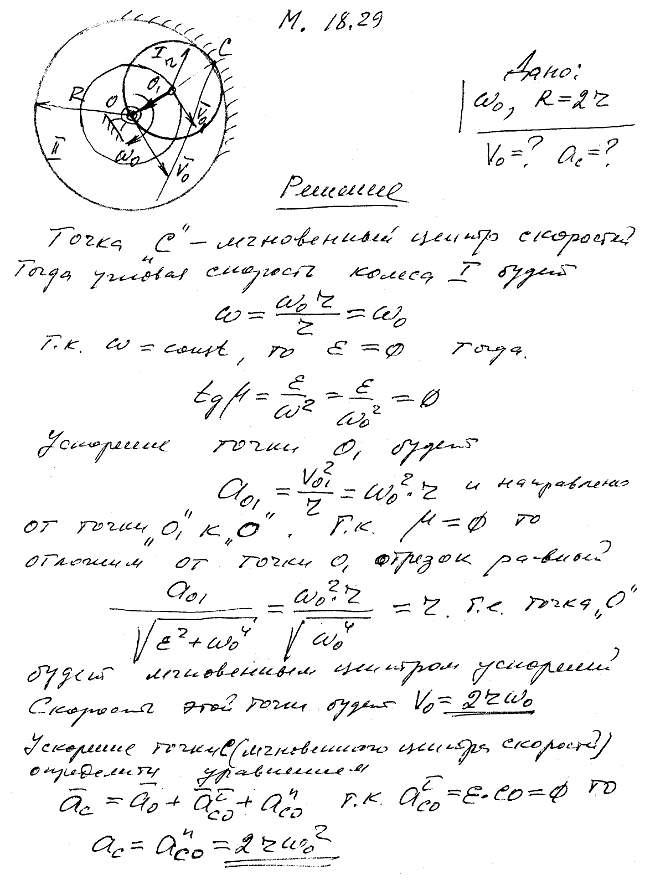 М. 18.29
I r C
O₁
R O
V̄₀
II ω₀ V̄₀
Дано:
ω₀, R = 2r
V₀ = ? a_c = ?
Решение
Точка „C" – мгновенный центр скоростей
Тогда угловая скорость колеса I будет
ω = ω₀ r / r = ω₀
т.к. ω = const, то ε = 0 тогда.
tg μ = ε / ω² = ε / ω₀² = 0
Ускорение точки O₁ будет
a_{O1} = V_{O1}² / r = ω₀² · r и направлено
от точки „O₁" к „O". Т.к. μ = 0 то
отложим от точки O₁ отрезок равный
a_{O1} / √(ε² + ω₀⁴) = ω₀² · r / √(ω₀⁴) = r. т.е. точка „O"
будет мгновенным центром ускорений
Скорость этой точки будет V₀ = 2rω₀
Ускорение точки C (мгновенного центра скоростей)
определить уравнением
ā_c = ā₀ + ā_{CO}^τ + a_{CO}^n т.к. a_{CO}^τ = ε · CO = 0 то
a_c = a_{CO}^n = 2rω₀²